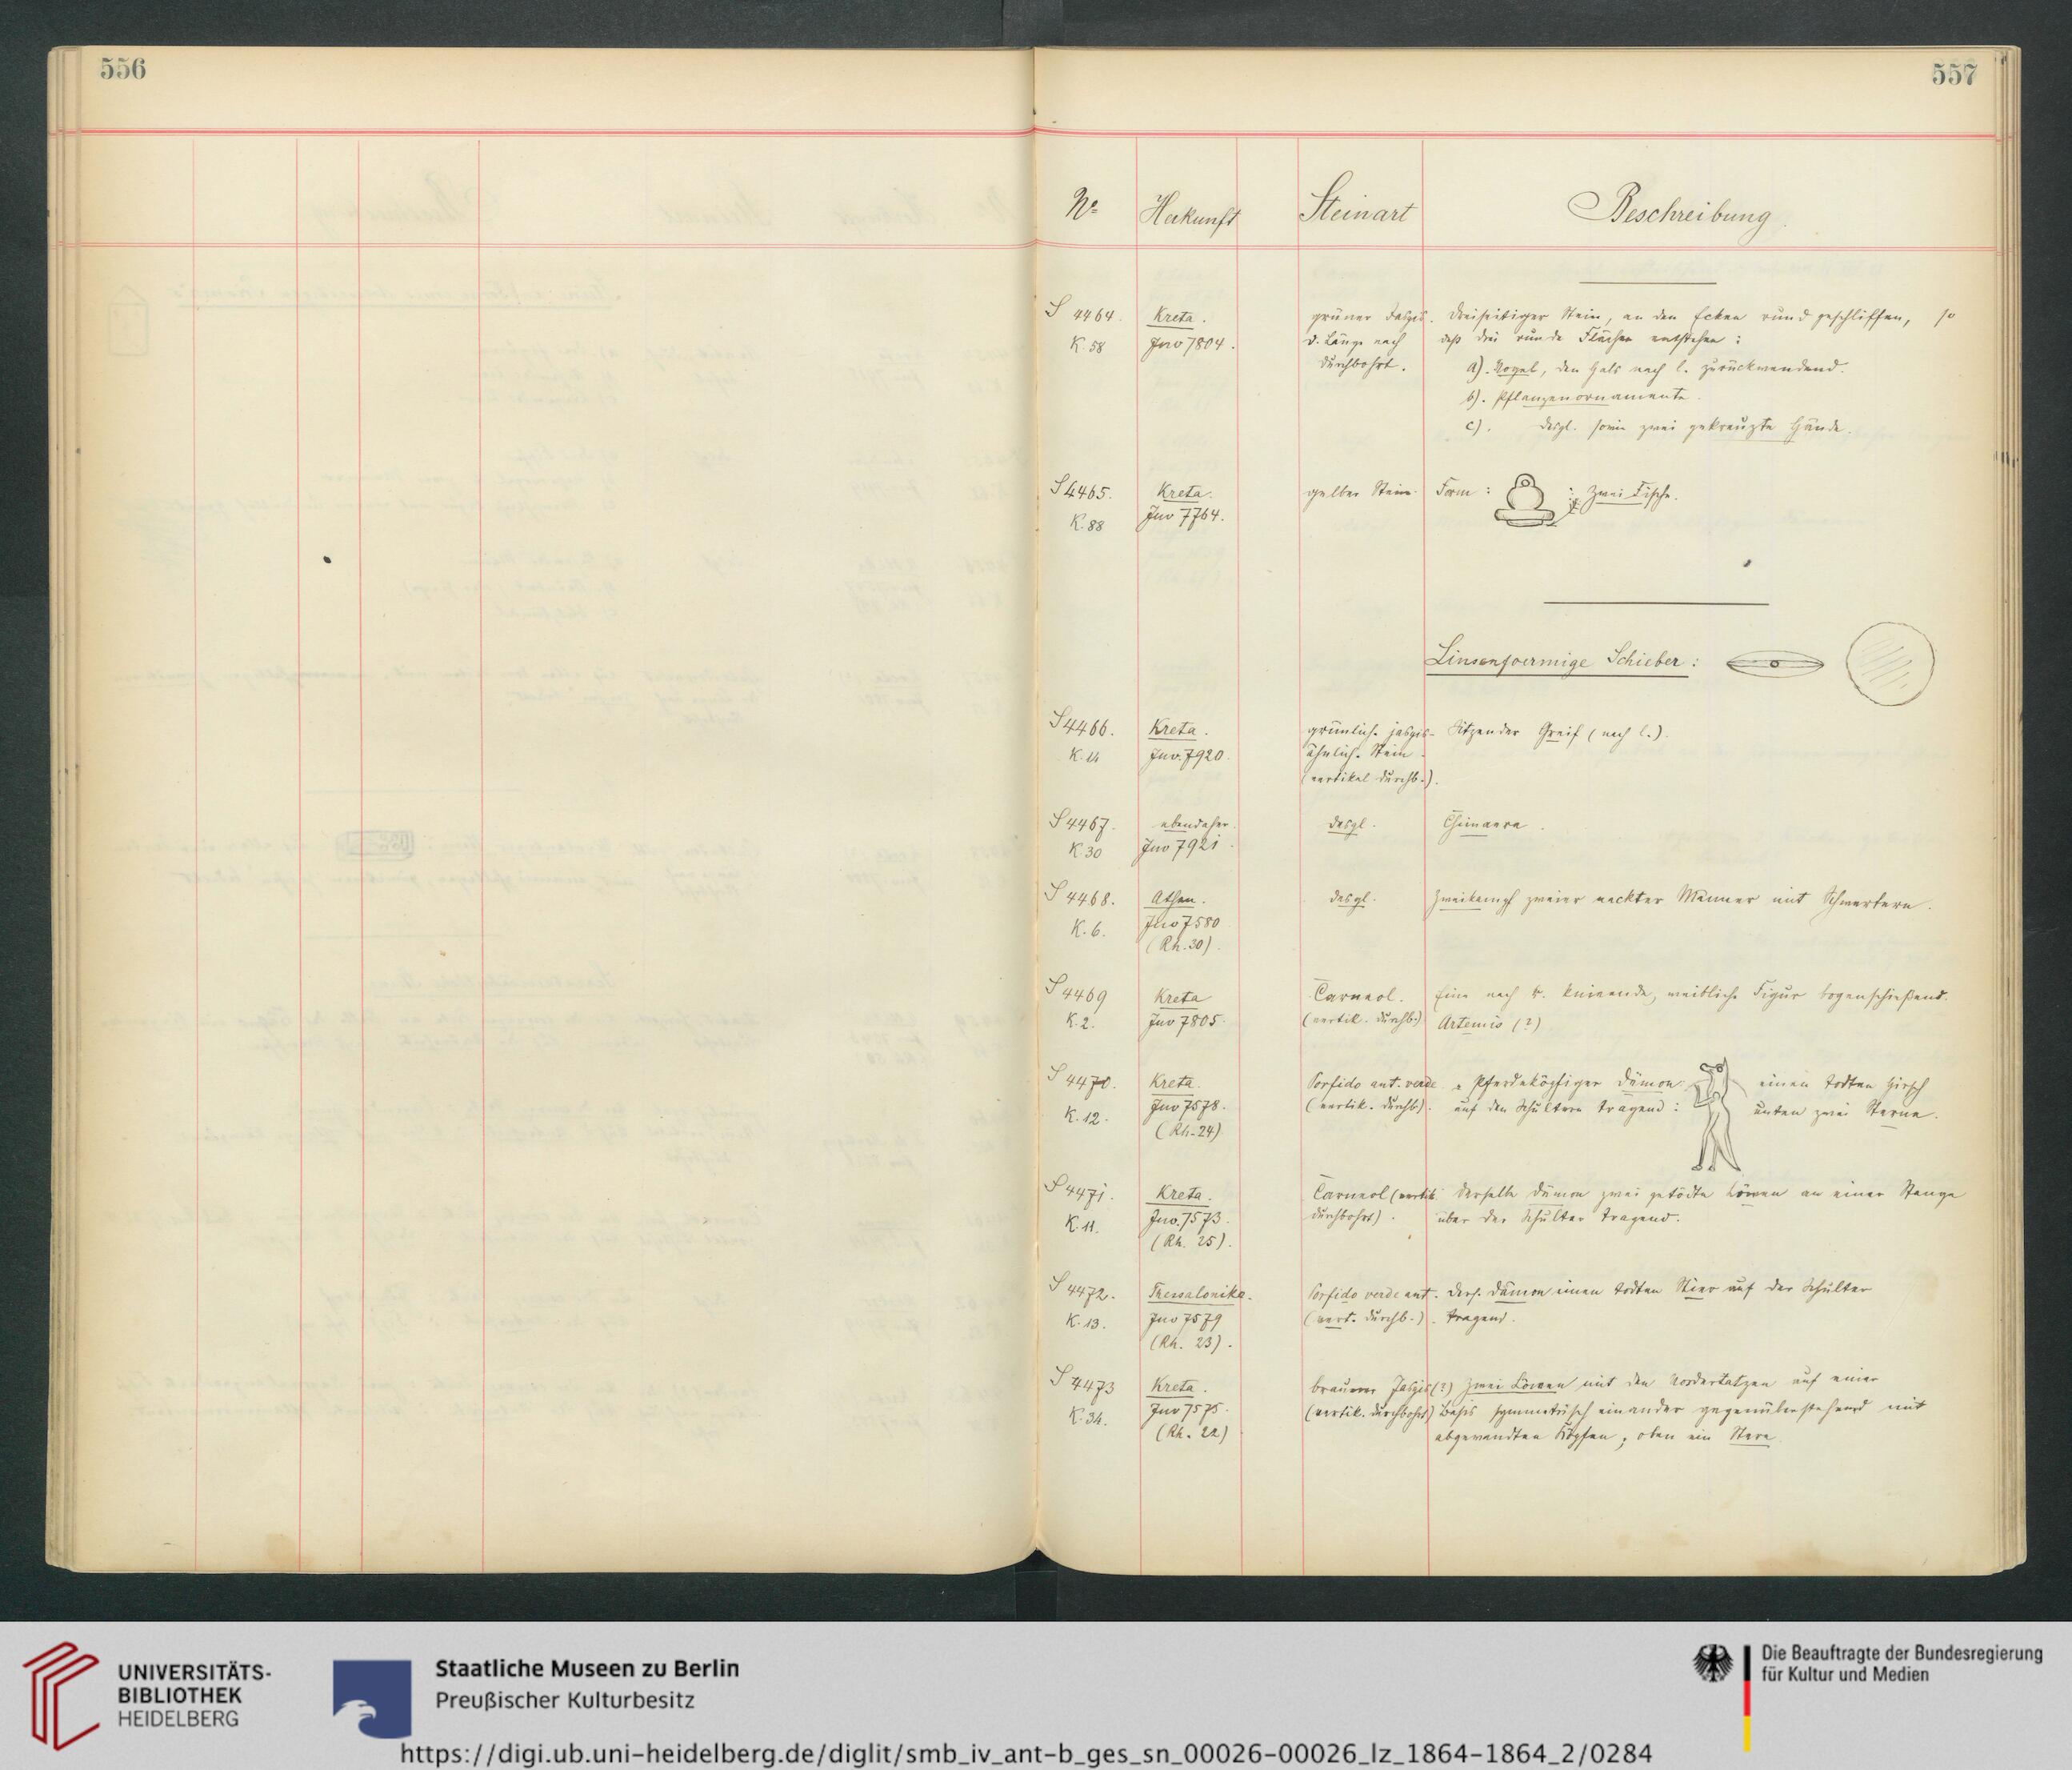 556
557
No Herkunft Steinart Beschreibung
S 4464. Kreta. grüner Jaspis. Dreiseitiger Stein, an den Ecken rund geschliffen, so
K. 58 Inv 7804. d. Länge nach daß drei runde Flächen entstehen:
durchbohrt. a). Vogel, den Hals nach l. zurückwendend.
b). Pflanzenornamente.
c). desgl. sowie zwei gekreuzte Hände.
S 4465. Kreta. gelber Stein. Form: : Zwei Fische.
K. 88 Inv 7764.
Linsenfoermige Schieber:
S 4466. Kreta. grünlich. jaspis- Sitzender Greif (nach l.).
K. Inv. 7920. ähnlich. Stein
(vertikal durchb.).
S 4467. ebendaher. desgl. Chimaera.
K. 30 Inv 7921.
S 4468. Athen. desgl. Zweikampf zweier nackter Männer mit Schwertern.
K. 6. Inv 7580
(Rh. 30).
S 4469 Kreta Carneol. Eine nach r. knieende, weibliche Figur bogenschießend.
K. 2. Inv 7805. (vertik. durchb.) Artemis (?)
S 4470. Kreta. Porfido ant. verde Pferdeköpfiger Dämon einen todten Hirsch
K. 12. Inv 7578. (vertik. durchb). auf den Schultern tragend: unten zwei Sterne.
(Rh. 24)
S 4471. Kreta. Carneol (vertik. Derselbe Dämon zwei getödte Löwen an einer Stange
K. 11. Inv. 7573. durchbohrt). über der Schulter tragend.
(Rh. 25).
S 4472. Thessalonike. Porfido verde ant. Ders. Dämon einen todten Stier auf der Schulter
K. 13. Inv 7579 (vert. durchb.). tragend.
(Rh. 23).
S 4473 Kreta. brauner Jaspis (?) Zwei Löwen mit den Vordertatzen auf einer
K. 34. Inv 7575. (vertik. durchbohrt) Basis symmetrisch einander gegenüberstehend mit
(Rh. 22) abgewandten Köpfen; oben ein Stern
UNIVERSITÄTS-
BIBLIOTHEK
HEIDELBERG
Staatliche Museen zu Berlin
Preußischer Kulturbesitz
Die Beauftragte der Bundesregierung
für Kultur und Medien
https://digi.ub.uni-heidelberg.de/diglit/smb_iv_ant-b_ges_sn_00026-00026_lz_1864-1864_2/0284